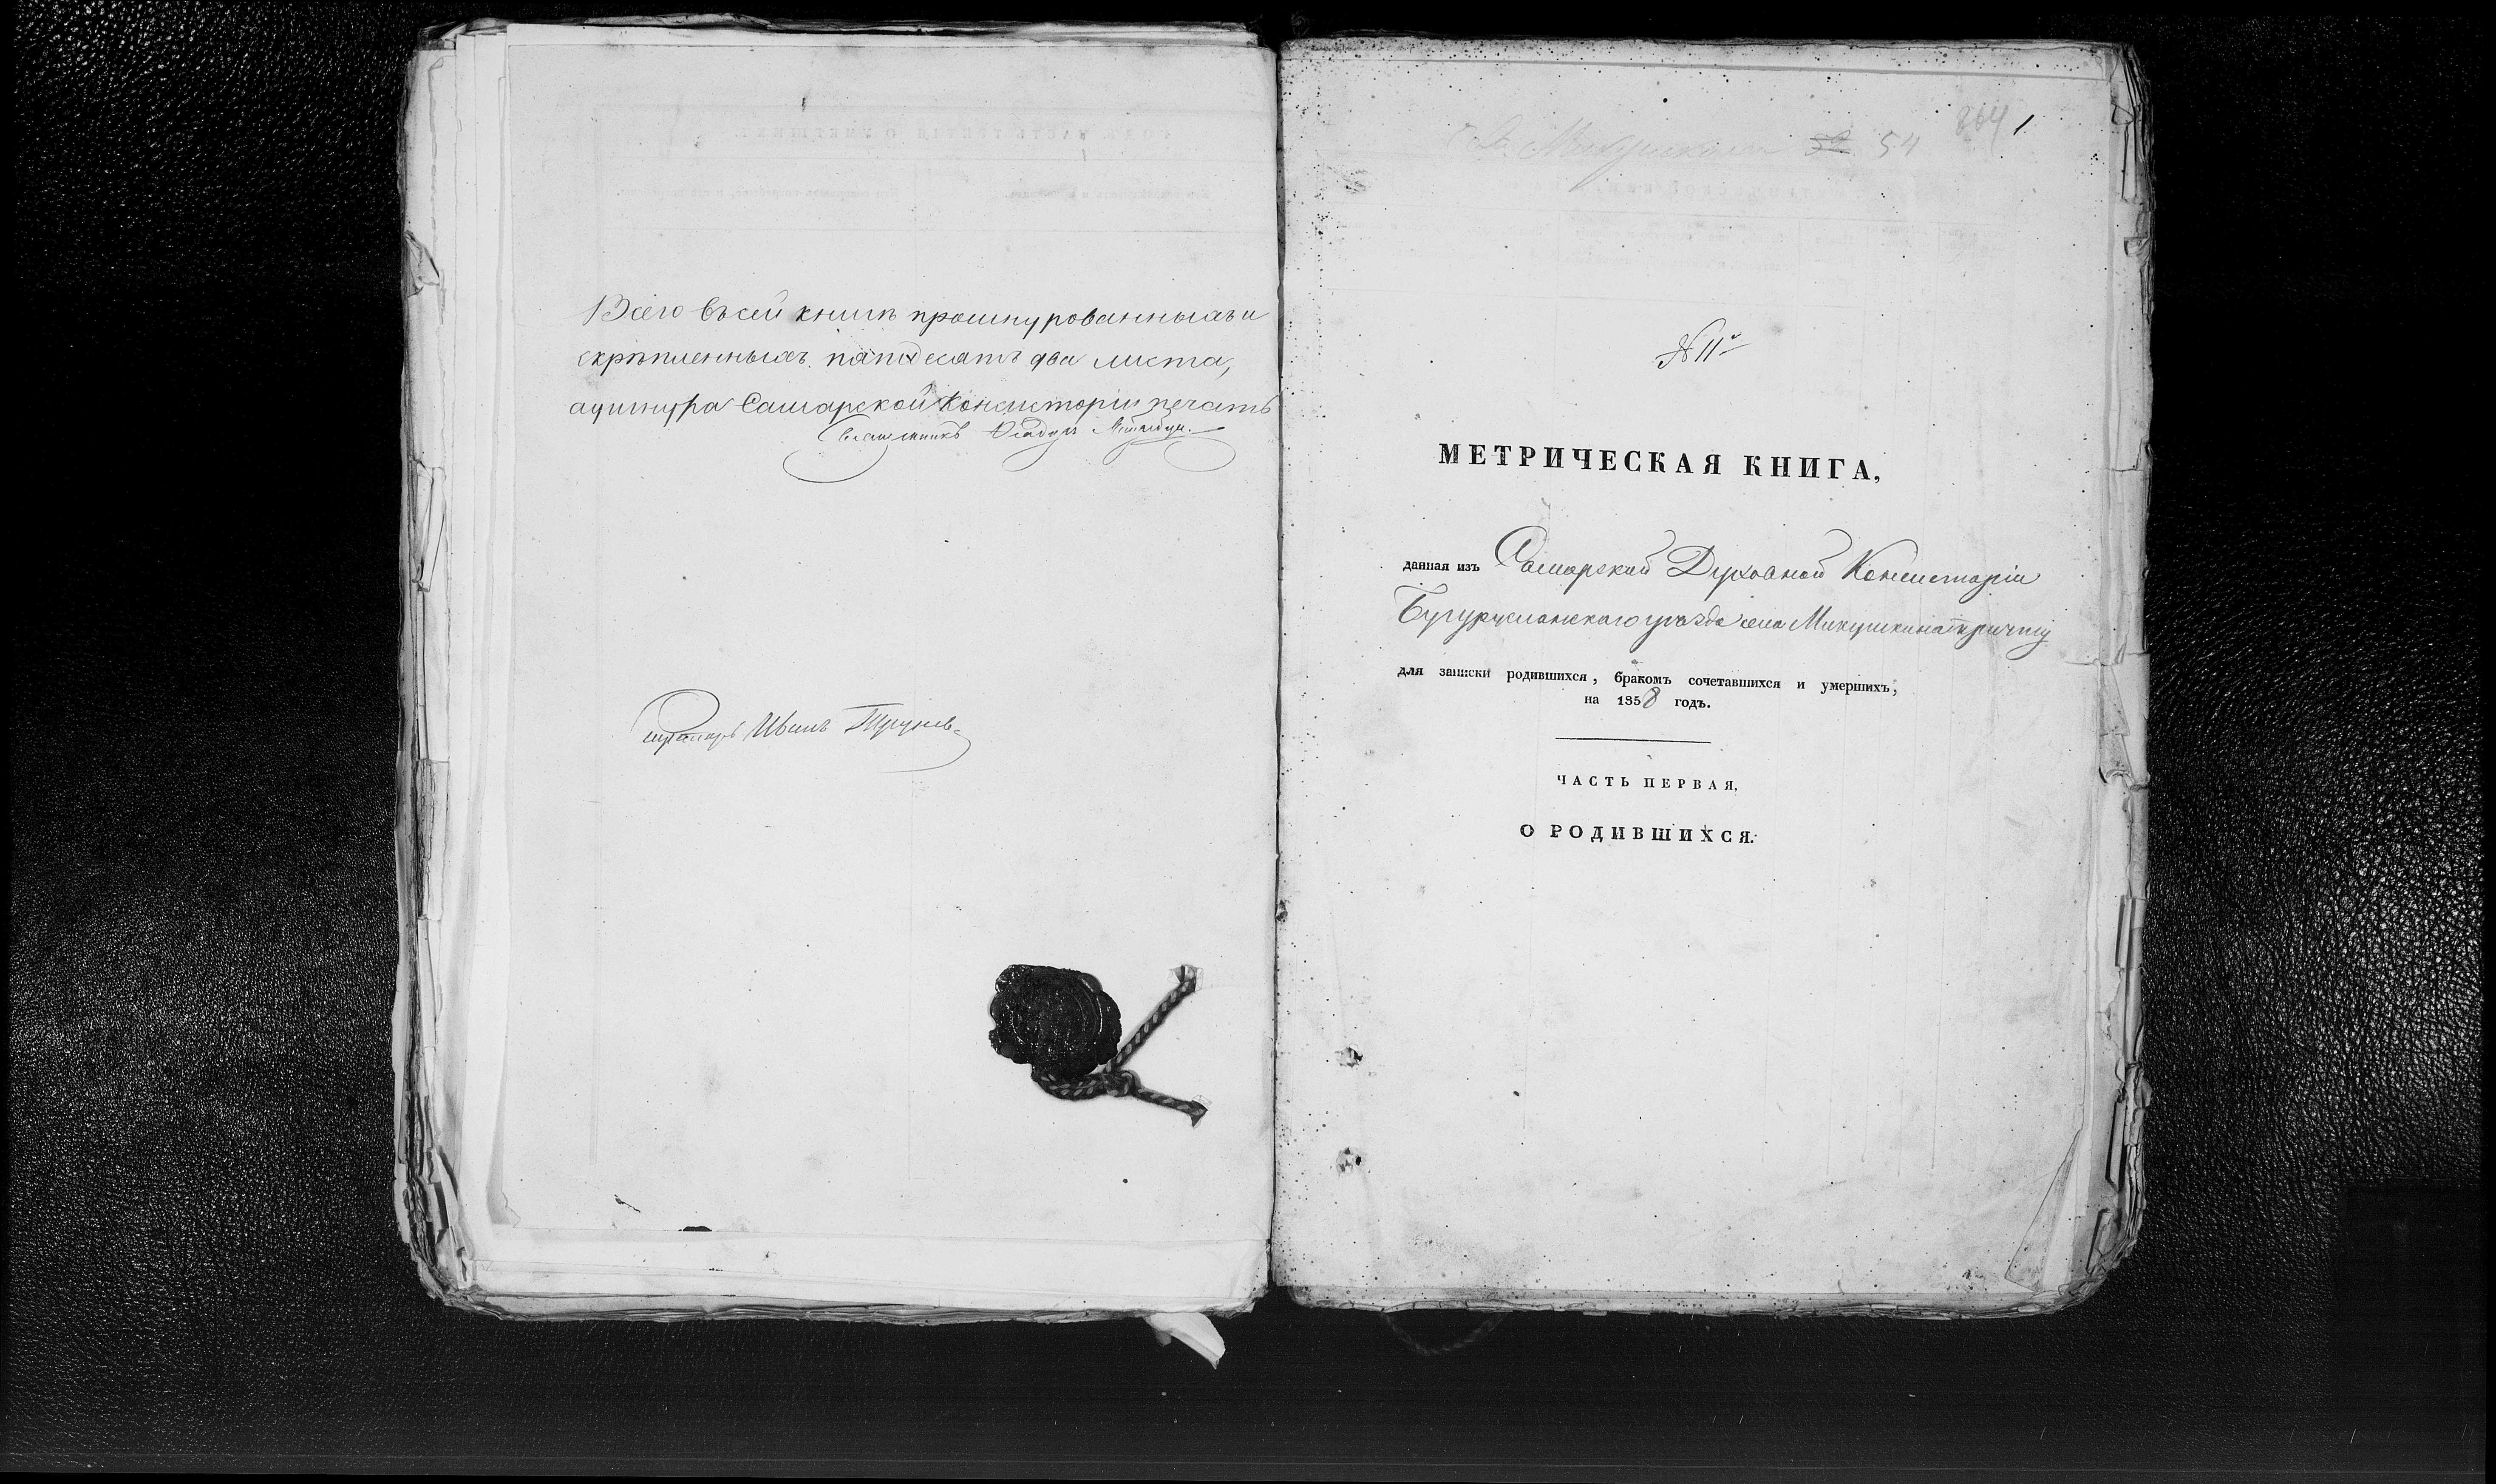 Всего въ сей книгѣ прошнурованныхъ и
скрѣпленныхъ пятдесятъ два листа,
а у шнура Самарской Консисторіи печать
Иванъ
54
864 1
№ 11й
МЕТРИЧЕСКАЯ КНИГА,
данная изъ Самарской Духовной Консисторіи
Бугурусланскаго уѣзда села Микушкина причту
для записки родившихся, бракомъ сочетавшихся и умершихъ,
на 1858 годъ.
ЧАСТЬ ПЕРВАЯ,
О РОДИВШИХСЯ.